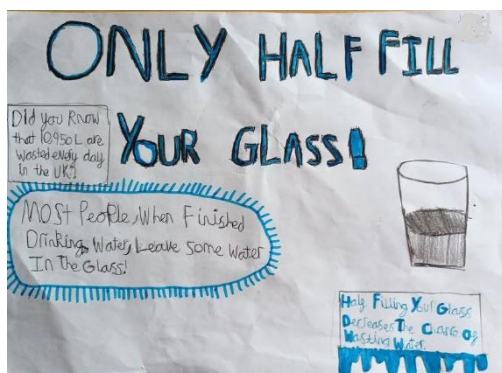 ONLY HALF FILL
YOUR GLASS!
Did you Know
that 10,950L are
Wasted every day
In the UK?
MOSt PeoPle, When Finished
Drinking, Water, Leave Some Water
In the Glass!
Half Filling Your Glass
Decreases The Chance Of
Wasting Water.